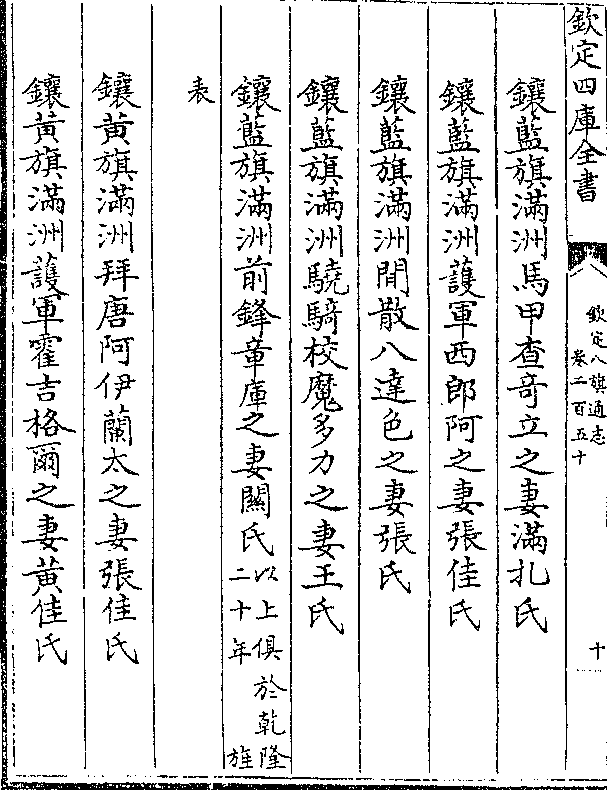 欽定四庫全書
欽定八旗通志
卷二百五十
十
鑲藍旗滿洲馬甲查竒立之妻滿扎氏
鑲藍旗滿洲護軍西郎阿之妻張佳氏
鑲藍旗滿洲閒散八達色之妻張氏
鑲藍旗滿洲驍騎校魔多力之妻王氏
鑲藍旗滿洲前鋒章庫之妻關氏以上俱於乾隆二十年旌
表
鑲黃旗滿洲拜唐阿伊蘭太之妻張佳氏
鑲黃旗滿洲護軍霍吉格爾之妻黃佳氏